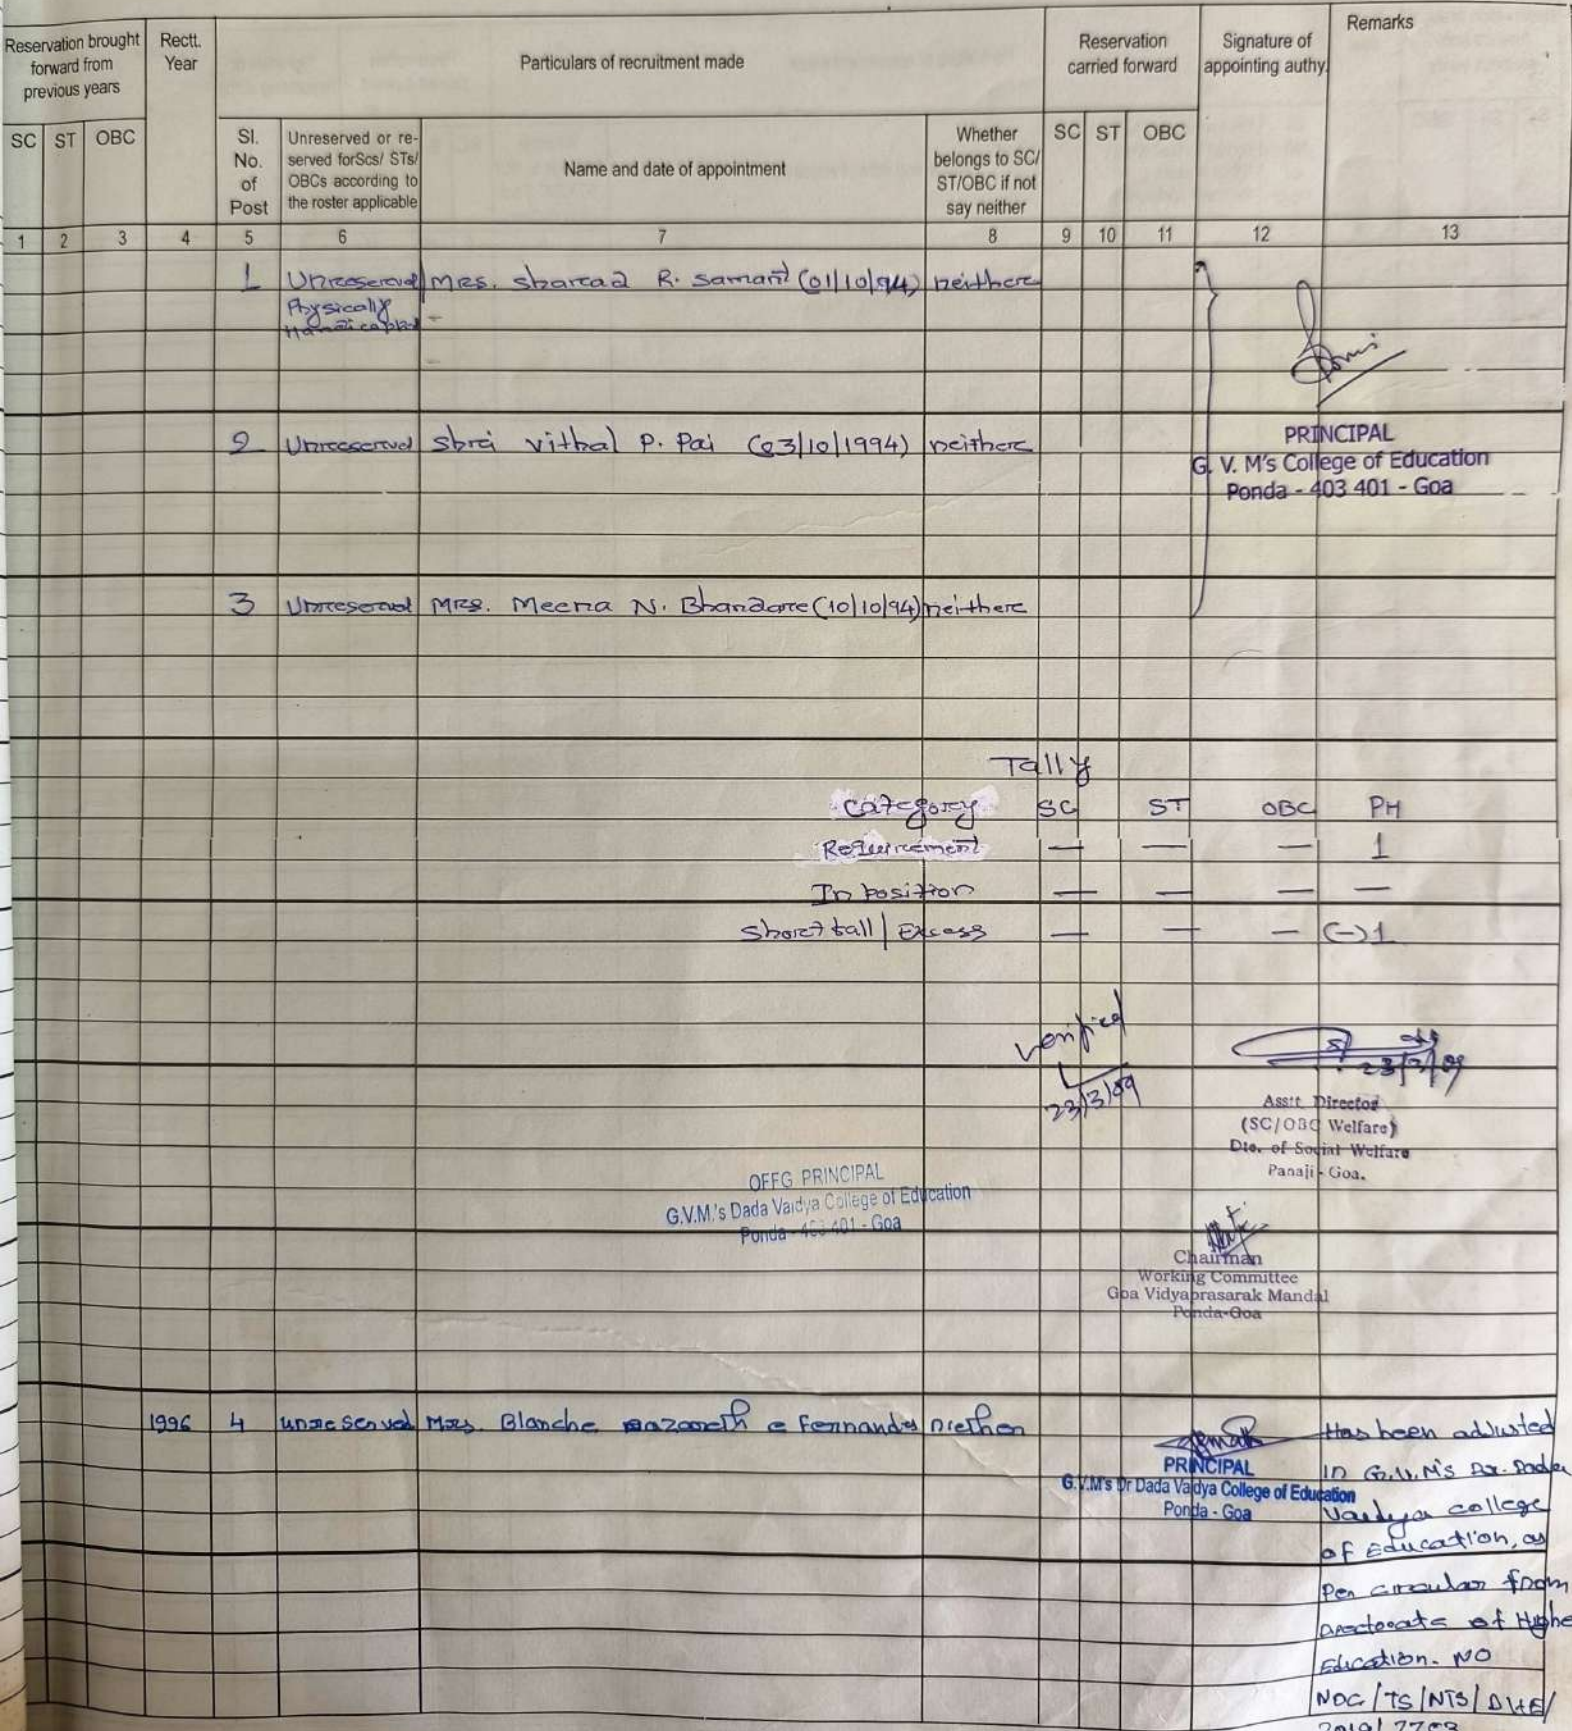 Reservation brought forward from previous years
Rectt. Year
Particulars of recruitment made
Reservation carried forward
Signature of appointing authy.
Remarks
SC ST OBC
Sl. No. of Post
Unreserved or re-served forScs/ STs/ OBCs according to the roster applicable
Name and date of appointment
Whether belongs to SC/ ST/OBC if not say neither
SC ST OBC
1 2 3 4 5 6 7 8 9 10 11 12 13
1 Unreserved Mrs. Sharad R. Samant (01/10/94) neither
Physically
Handicapped
2 Unreserved Shri Vithal P. Pai (03/10/1994) neither
PRINCIPAL
G. V. M's College of Education
Ponda - 403 401 - Goa
3 Unreserved Mrs. Meena N. Bhandare (10/10/94) neither
Tally
Category SC ST OBC PH
Requirement — — — 1
In position — — — —
Short fall / Excess — — — (-)1
Verified
23/3/09
23/3/09
Asstt. Director
(SC/OBC Welfare)
Dte. of Social Welfare
Panaji - Goa.
OFFG PRINCIPAL
G.V.M.'s Dada Vaidya College of Education
Ponda - 403 401 - Goa
Chairman
Working Committee
Goa Vidyaprasarak Mandal
Ponda-Goa
1996 4 unreserved Mrs. Blanche Nazareth e Fernandes
PRINCIPAL
G.V.M's Dr Dada Vaidya College of Education
Ponda - Goa
Has been adjusted
in G.V.M's Dr. Dada
Vaidya college
of Education, as
Per circular from
Directorate of Highe
Education. NO
NOC/TS/NTS/DHE/